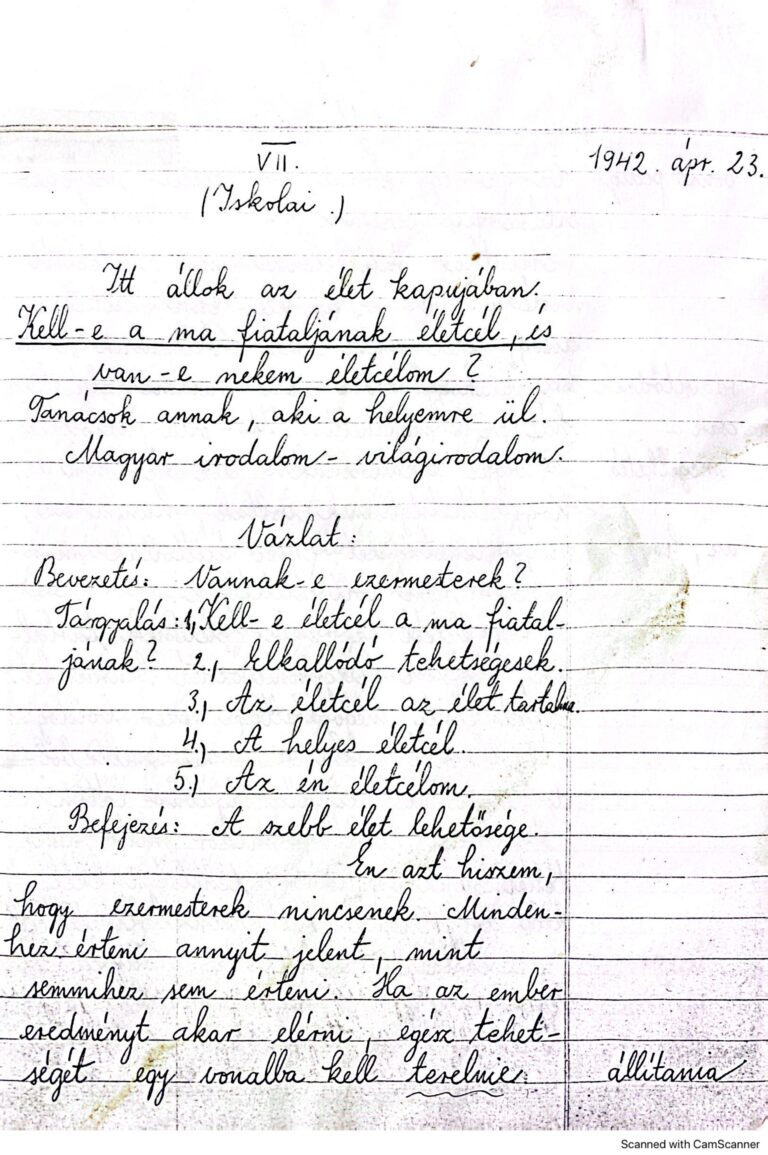 VII.
1942. ápr. 23.
(Iskolai.)
Itt állok az élet kapujában.
Kell-e a ma fiataljának életcél, és
van-e nekem életcélom?
Tanácsok annak, aki a helyemre ül.
Magyar irodalom - világirodalom.
Vázlat:
Bevezetés: Vannak-e ezermesterek?
Tárgyalás: 1, Kell-e életcél a ma fiatal-
jának? 2., Elkallódó tehetségesek.
3., Az életcél az élet tartalma.
4., A helyes életcél.
5., Az én életcélom.
Befejezés: A szebb élet lehetősége.
Én azt hiszem,
hogy ezermesterek nincsenek. Minden-
hez érteni annyit jelent, mint
semmihez sem érteni. Ha az ember
eredményt akar elérni, egész tehet-
ségét egy vonalba kell terelnie. állítania
Scanned with CamScanner